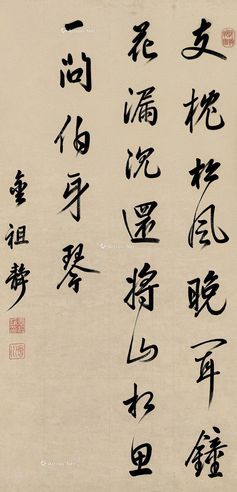 支枕松風晚聞鐘
花漏沉還將山水思
一問伯牙琴
金祖靜